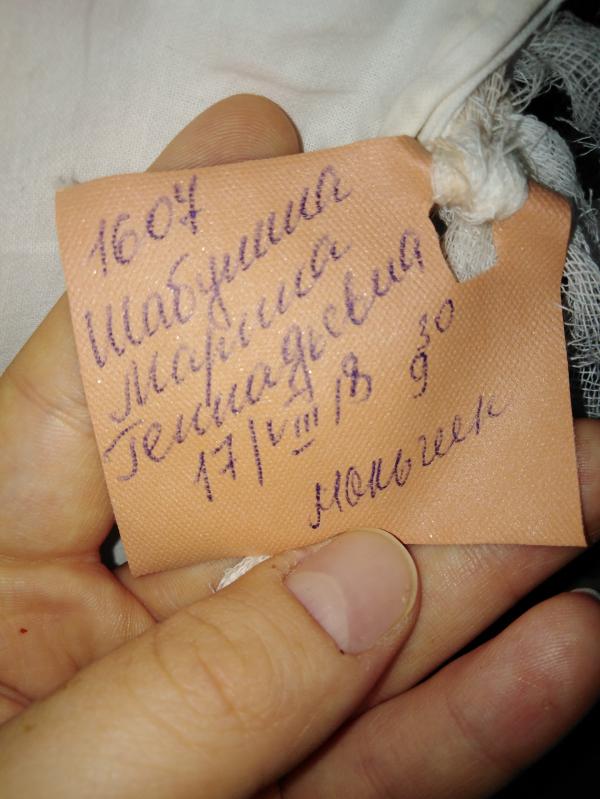 1607
Шабунина
Марина
Геннадьевна
17/VIII/18 9 30
мальчик